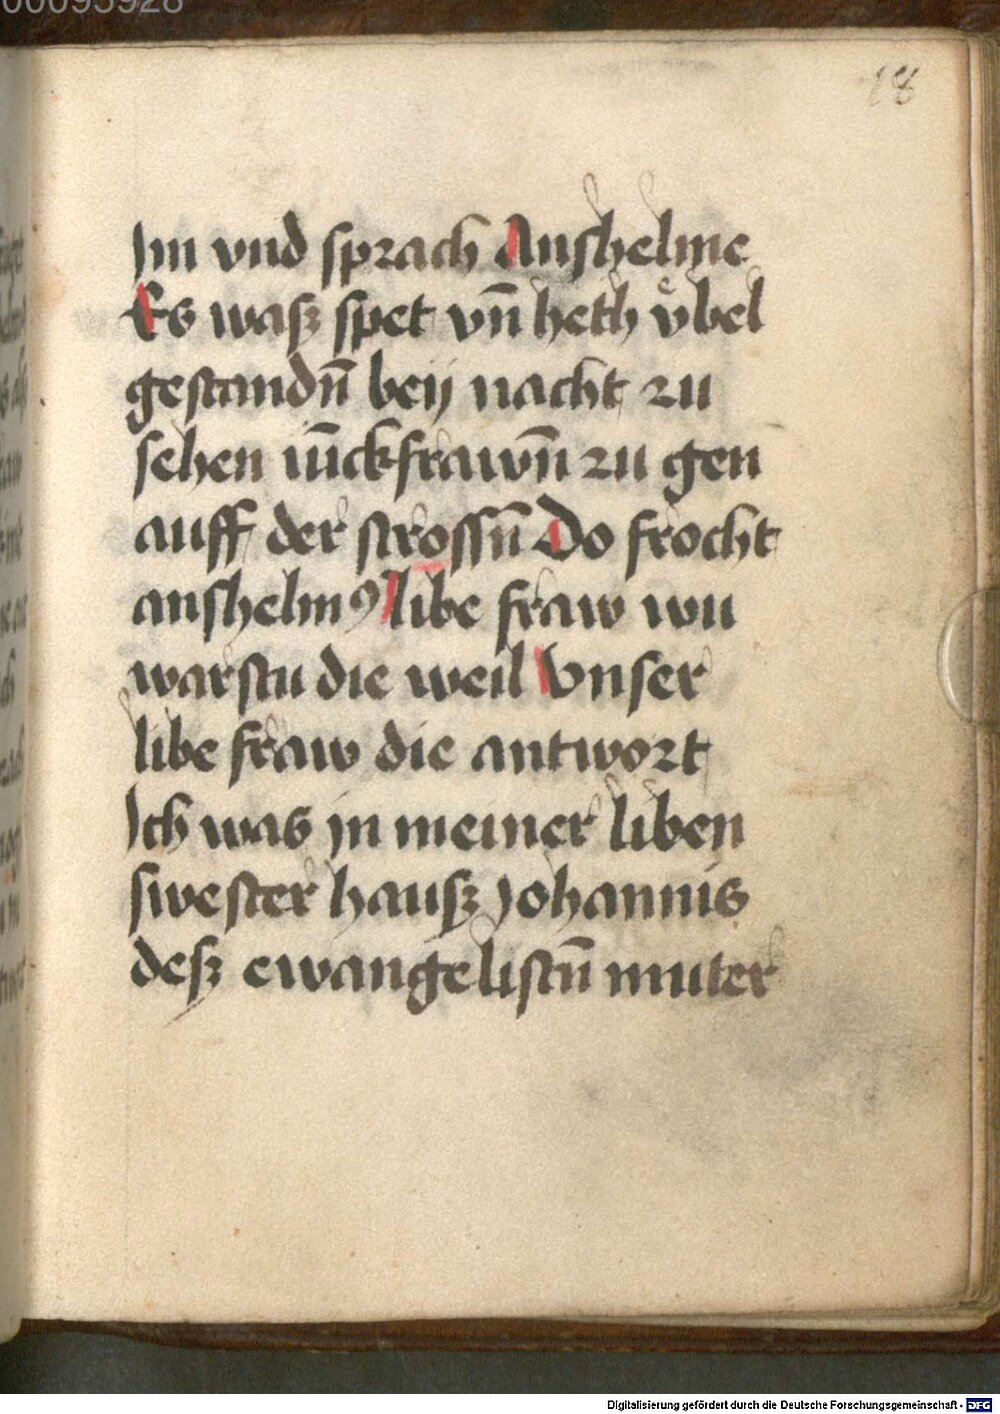 00095928
18
Im vnd sprach Anshelme
Es wasz spet vn̄ heth v̊bel
gestandn̄ beij nacht zu
sehen iūckfrawn̄ zu gen
auff der strossn̄ Do frocht
anshelmꝰ libe fraw wu
warstu die weil Vnser
libe fraw die antwort
Ich was in meiner liben
swester hausz Johannis
desz ewangelistn̄ muter
Digitalisierung gefördert durch die Deutsche Forschungsgemeinschaft - DFG